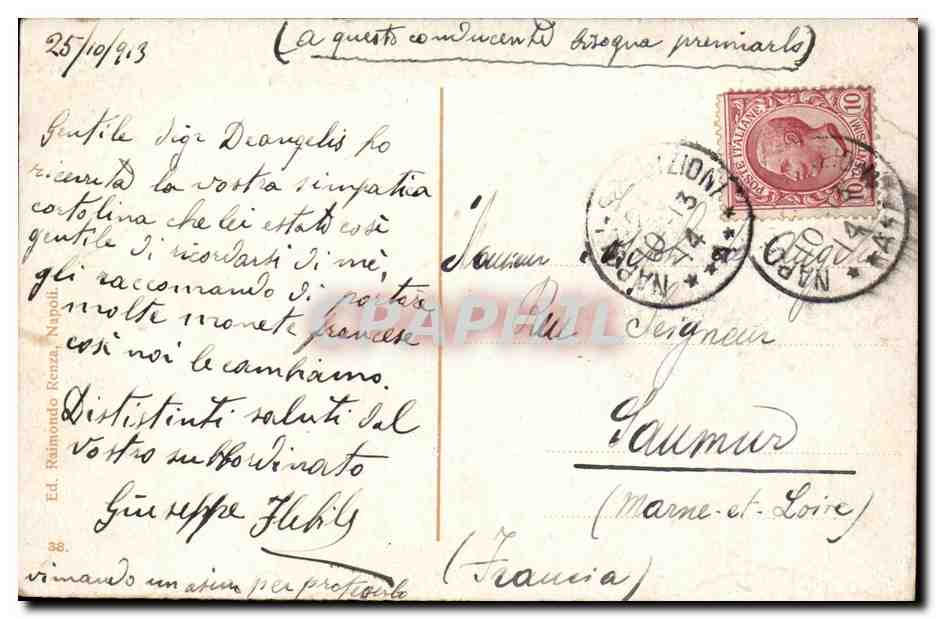 25/10/913
(a questo conducente bisogna premiarlo)
Gentile Sigr Deangelis ho
ricevuta la vostra simpatica
cartolina che lei estato così
gentile di ricordarsi di me,
gli raccomando di portare
molte monete francese
così noi le cambiamo.
Dististinti saluti dal
vostro subbordinato
Giuseppe
vi mando un per
Ed. Raimondo Renza, Napoli.
38.
POSTE ITALIANE
10 10
NAPOLI
13
14
NAPOLI
14
Rue Seigneur
Saumur
(Marne-et-Loire)
(Francia)
CPAPHIL